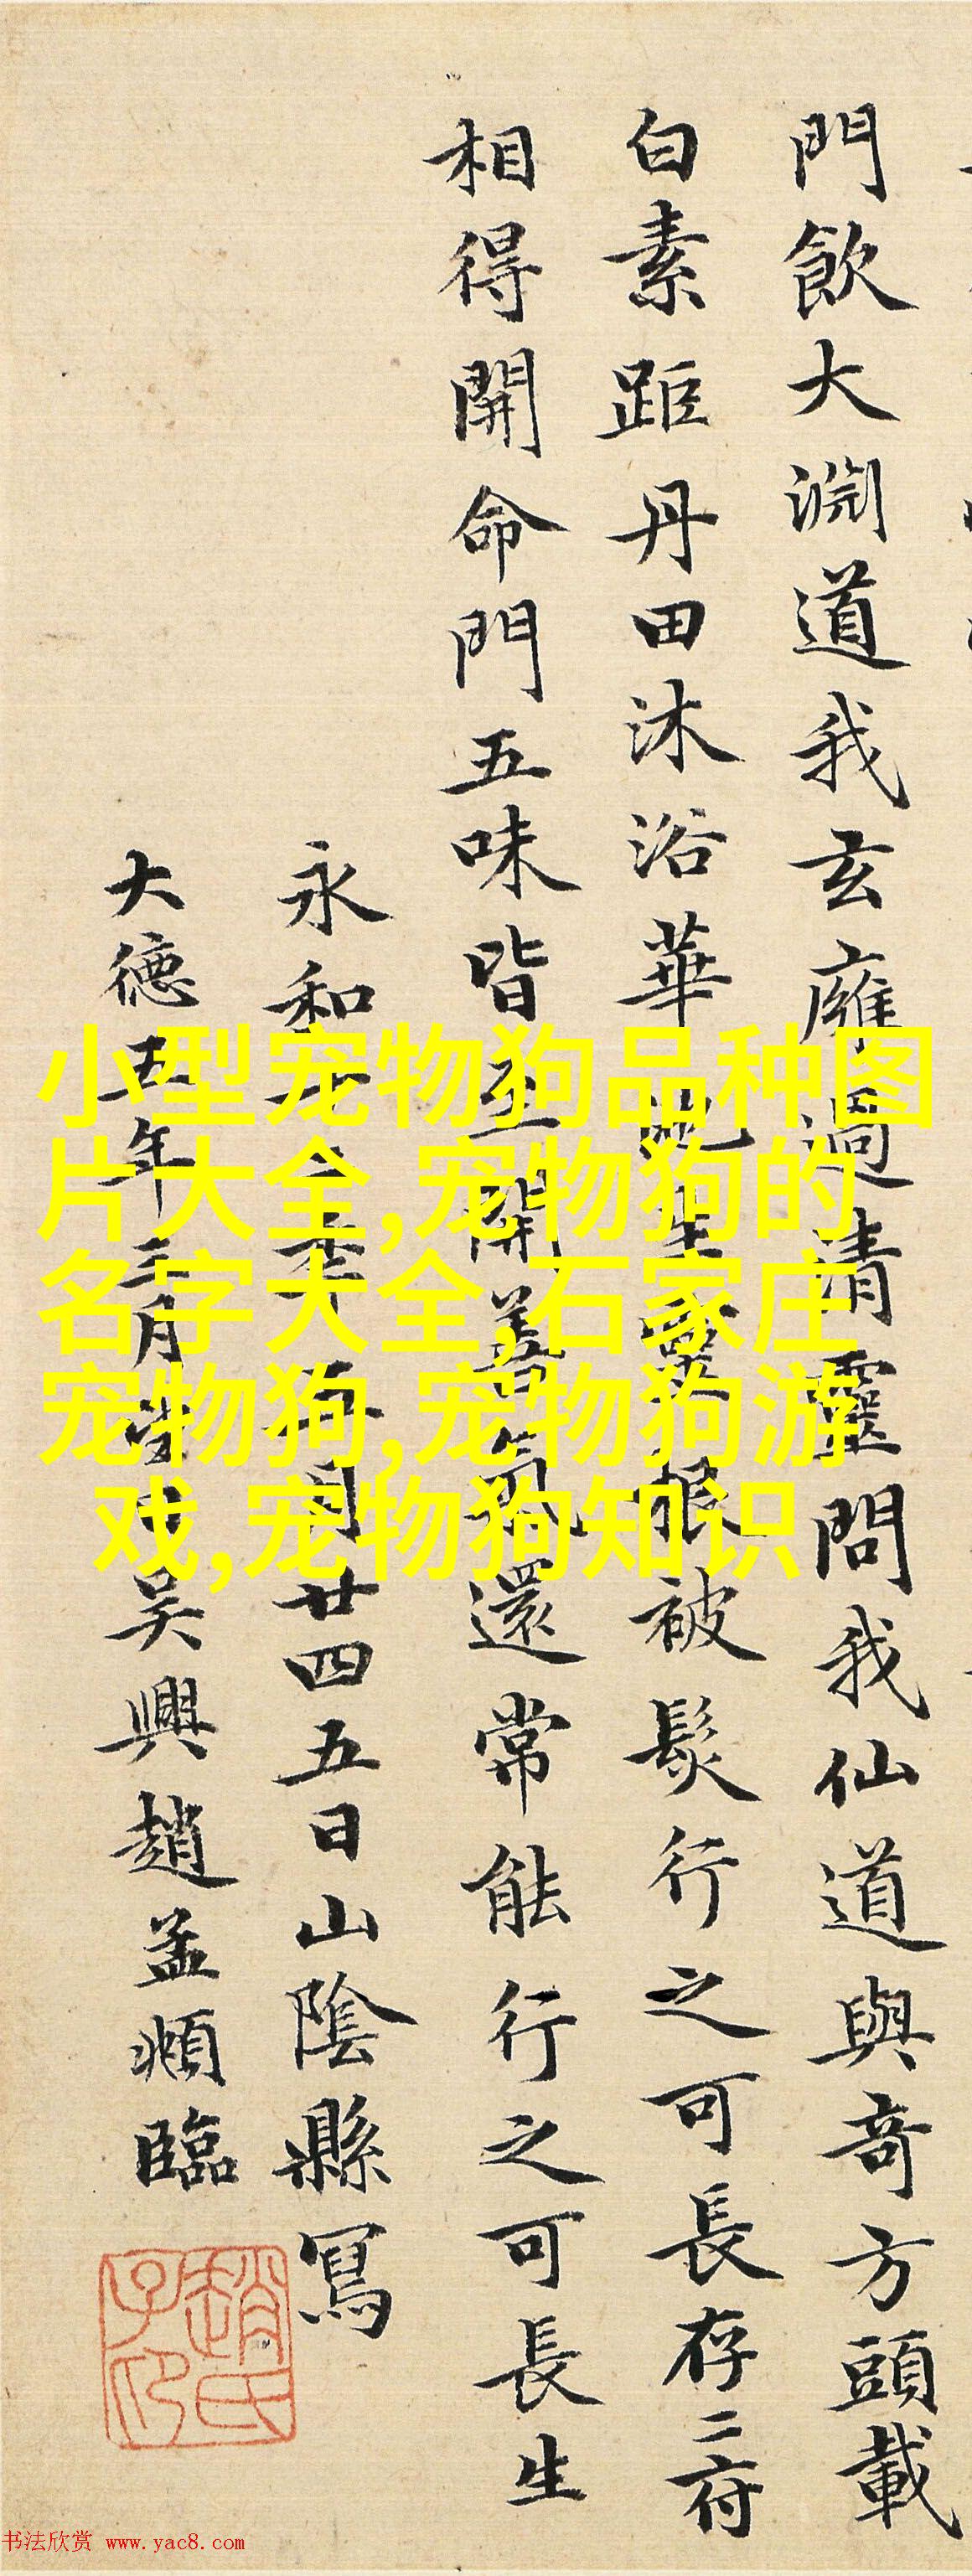 門飲大淵道我玄廱過清靈問我仙道與竒方頭載
白素距丹田沐浴華池生靈根被髮行之可長存二府
相得開命門五味皆至開善氣還常能行之可長生
永和年五月廿四五日山陰縣寫
大德五年三月吳興趙孟頫臨
趙氏
子卬
小型宠物狗品种图
片大全,宠物狗的
名字大全,石家庄
宠物狗,宠物狗游
戏,宠物狗知识
书法欣赏 www.yac8.com